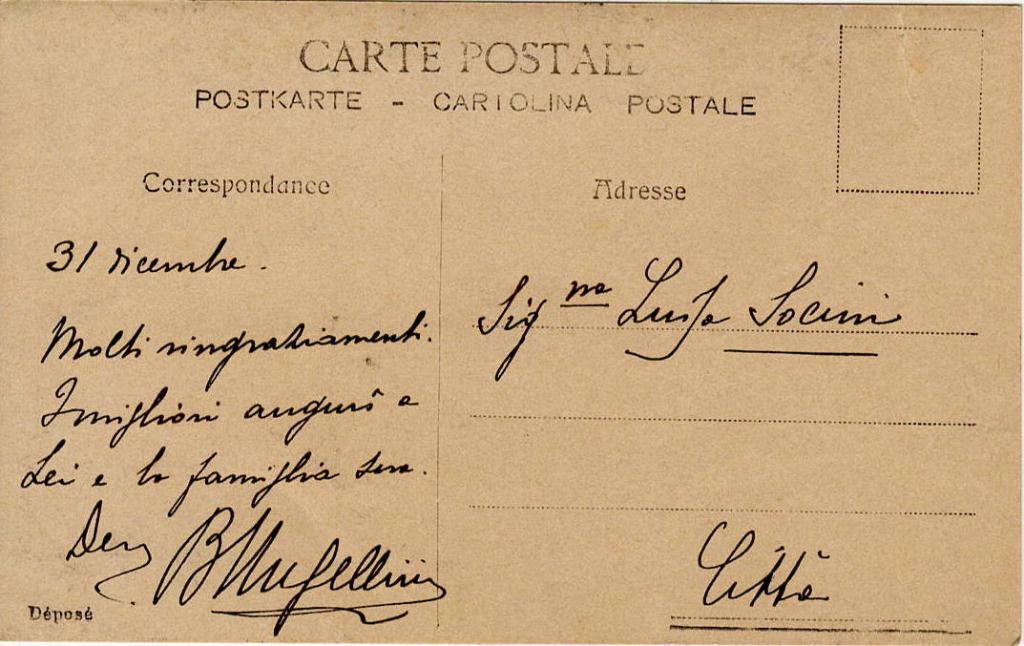 CARTE POSTALE
POSTKARTE - CARTOLINA POSTALE
Correspondance
31 dicembre.
Molti ringraziamenti.
I migliori augurî a
Lei e la famiglia sua.
Dev BMugellini
Déposé
Adresse
Sig.na Luisa Socini
Città